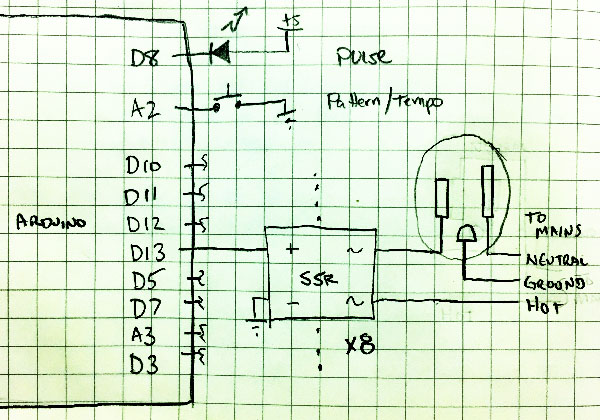 +5
D8
Pulse
A2
Pattern/Tempo
D10
D11
D12
ARDUINO
D13
D5
D7
A3
D3
+ ~
SSR
- ~
X8
TO
MAINS
NEUTRAL
GROUND
HOT